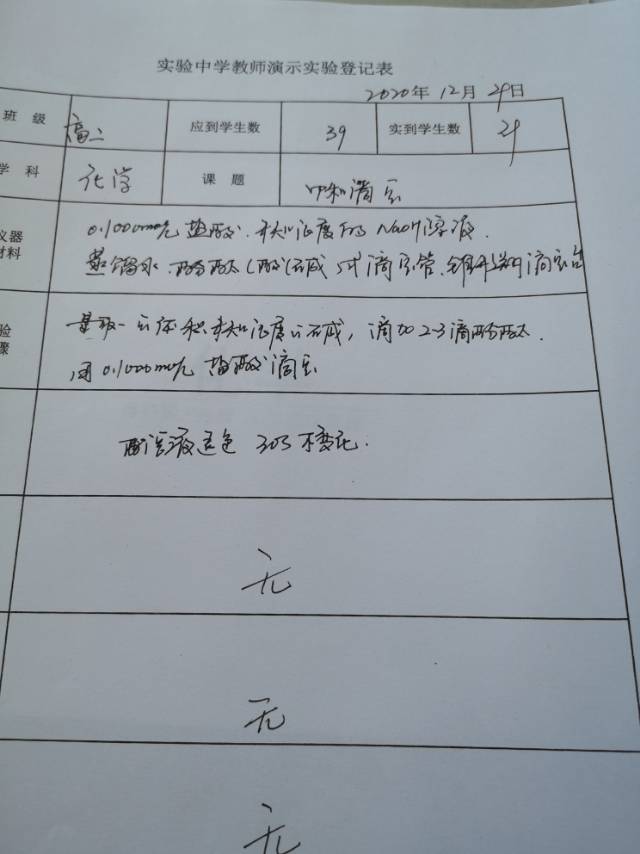 实验中学教师演示实验登记表
2020年12月29日
班 级 高二 应到学生数 39 实到学生数
学 科 化学 课 题 中和滴定
仪器
材料
0.1000mol/L 盐酸. 未知浓度的 NaOH溶液.
蒸馏水. 酚酞 酸 碱 式滴定管. 滴定台
验
骤
量取一定体积未知浓度的碱, 滴加2-3滴酚酞.
用0.1000mol/L 盐酸滴定
溶液 色 30S不变化.
无
无
无